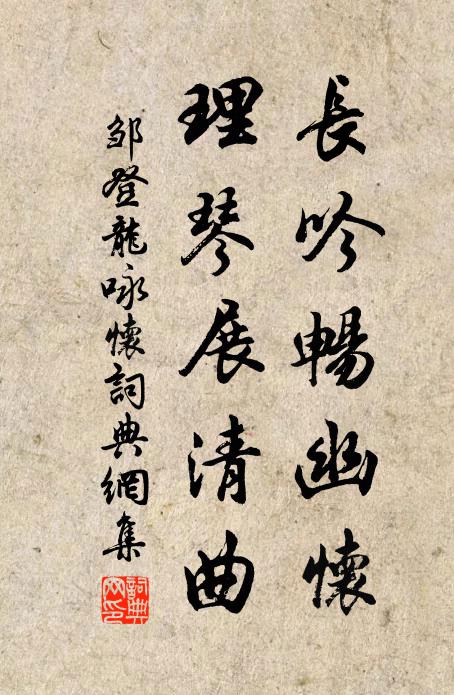 長吟暢幽懷
理琴展清曲
邹登龍咏懷詞典網集
詞典網印